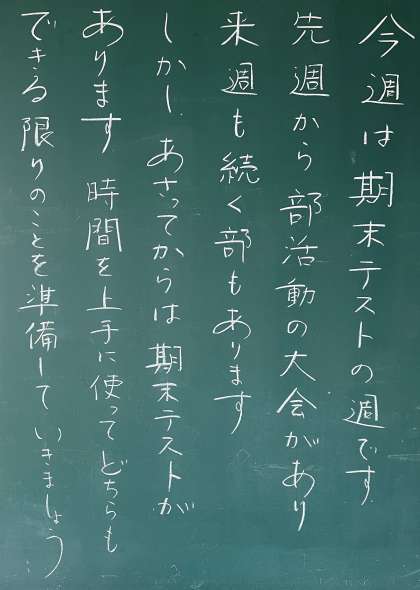 今週は期末テストの週です
先週から部活動の大会があり
来週も続く部もあります
しかし、あさってからは期末テストが
あります 時間を上手に使ってどちらも
できる限りのことを準備していきましょう